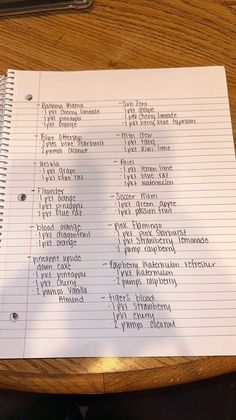 - Bahama Mama
· 1 pkt cherry limeade
· 1 pkt pineapple
· 1 pkt orange
- Blue Otterpop
· 2 pkts blue starburst
· 2 pumps coconut
- Ursula
· 1 pkt grape
· 1 pkt blue raz
- Flounder
· 1 pkt orange
· 1 pkt pineapple
· 1 pkt blue raz
- blood orange
· 1 pkt dragonfruit
· 1 pkt orange
- pineapple upside
down cake
· 1 pkt pineapple
· 1 pkt cherry
· 2 pumps vanilla
Almond
- Sub Zero
· 1 pkt grape
· 1 pkt cherry limeade
· 1 pkt berry blue typhoon
- Mtn Dew
· 1 pkt tang
· 1 pkt kiwi lime
- Ariel
· 1 pkt lemon lime
· 1 pkt blue raz
· 1 pkt watermelon
- Soccer Mom
· 1 pkt green apple
· 1 pkt passion fruit
- Pink Flamingo
· 1 pkt pink starburst
· 1 pkt strawberry lemonade
· 1 pump raspberry
- Raspberry Watermelon refresher
· 1 pkt watermelon
· 2 pumps raspberry
- tiger's blood
· 1 pkt strawberry
· 1 pkt cherry
· 2 pumps coconut